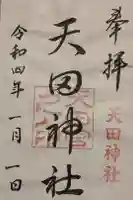 奉拝
天田神社
天田神社
令和四年一月一日